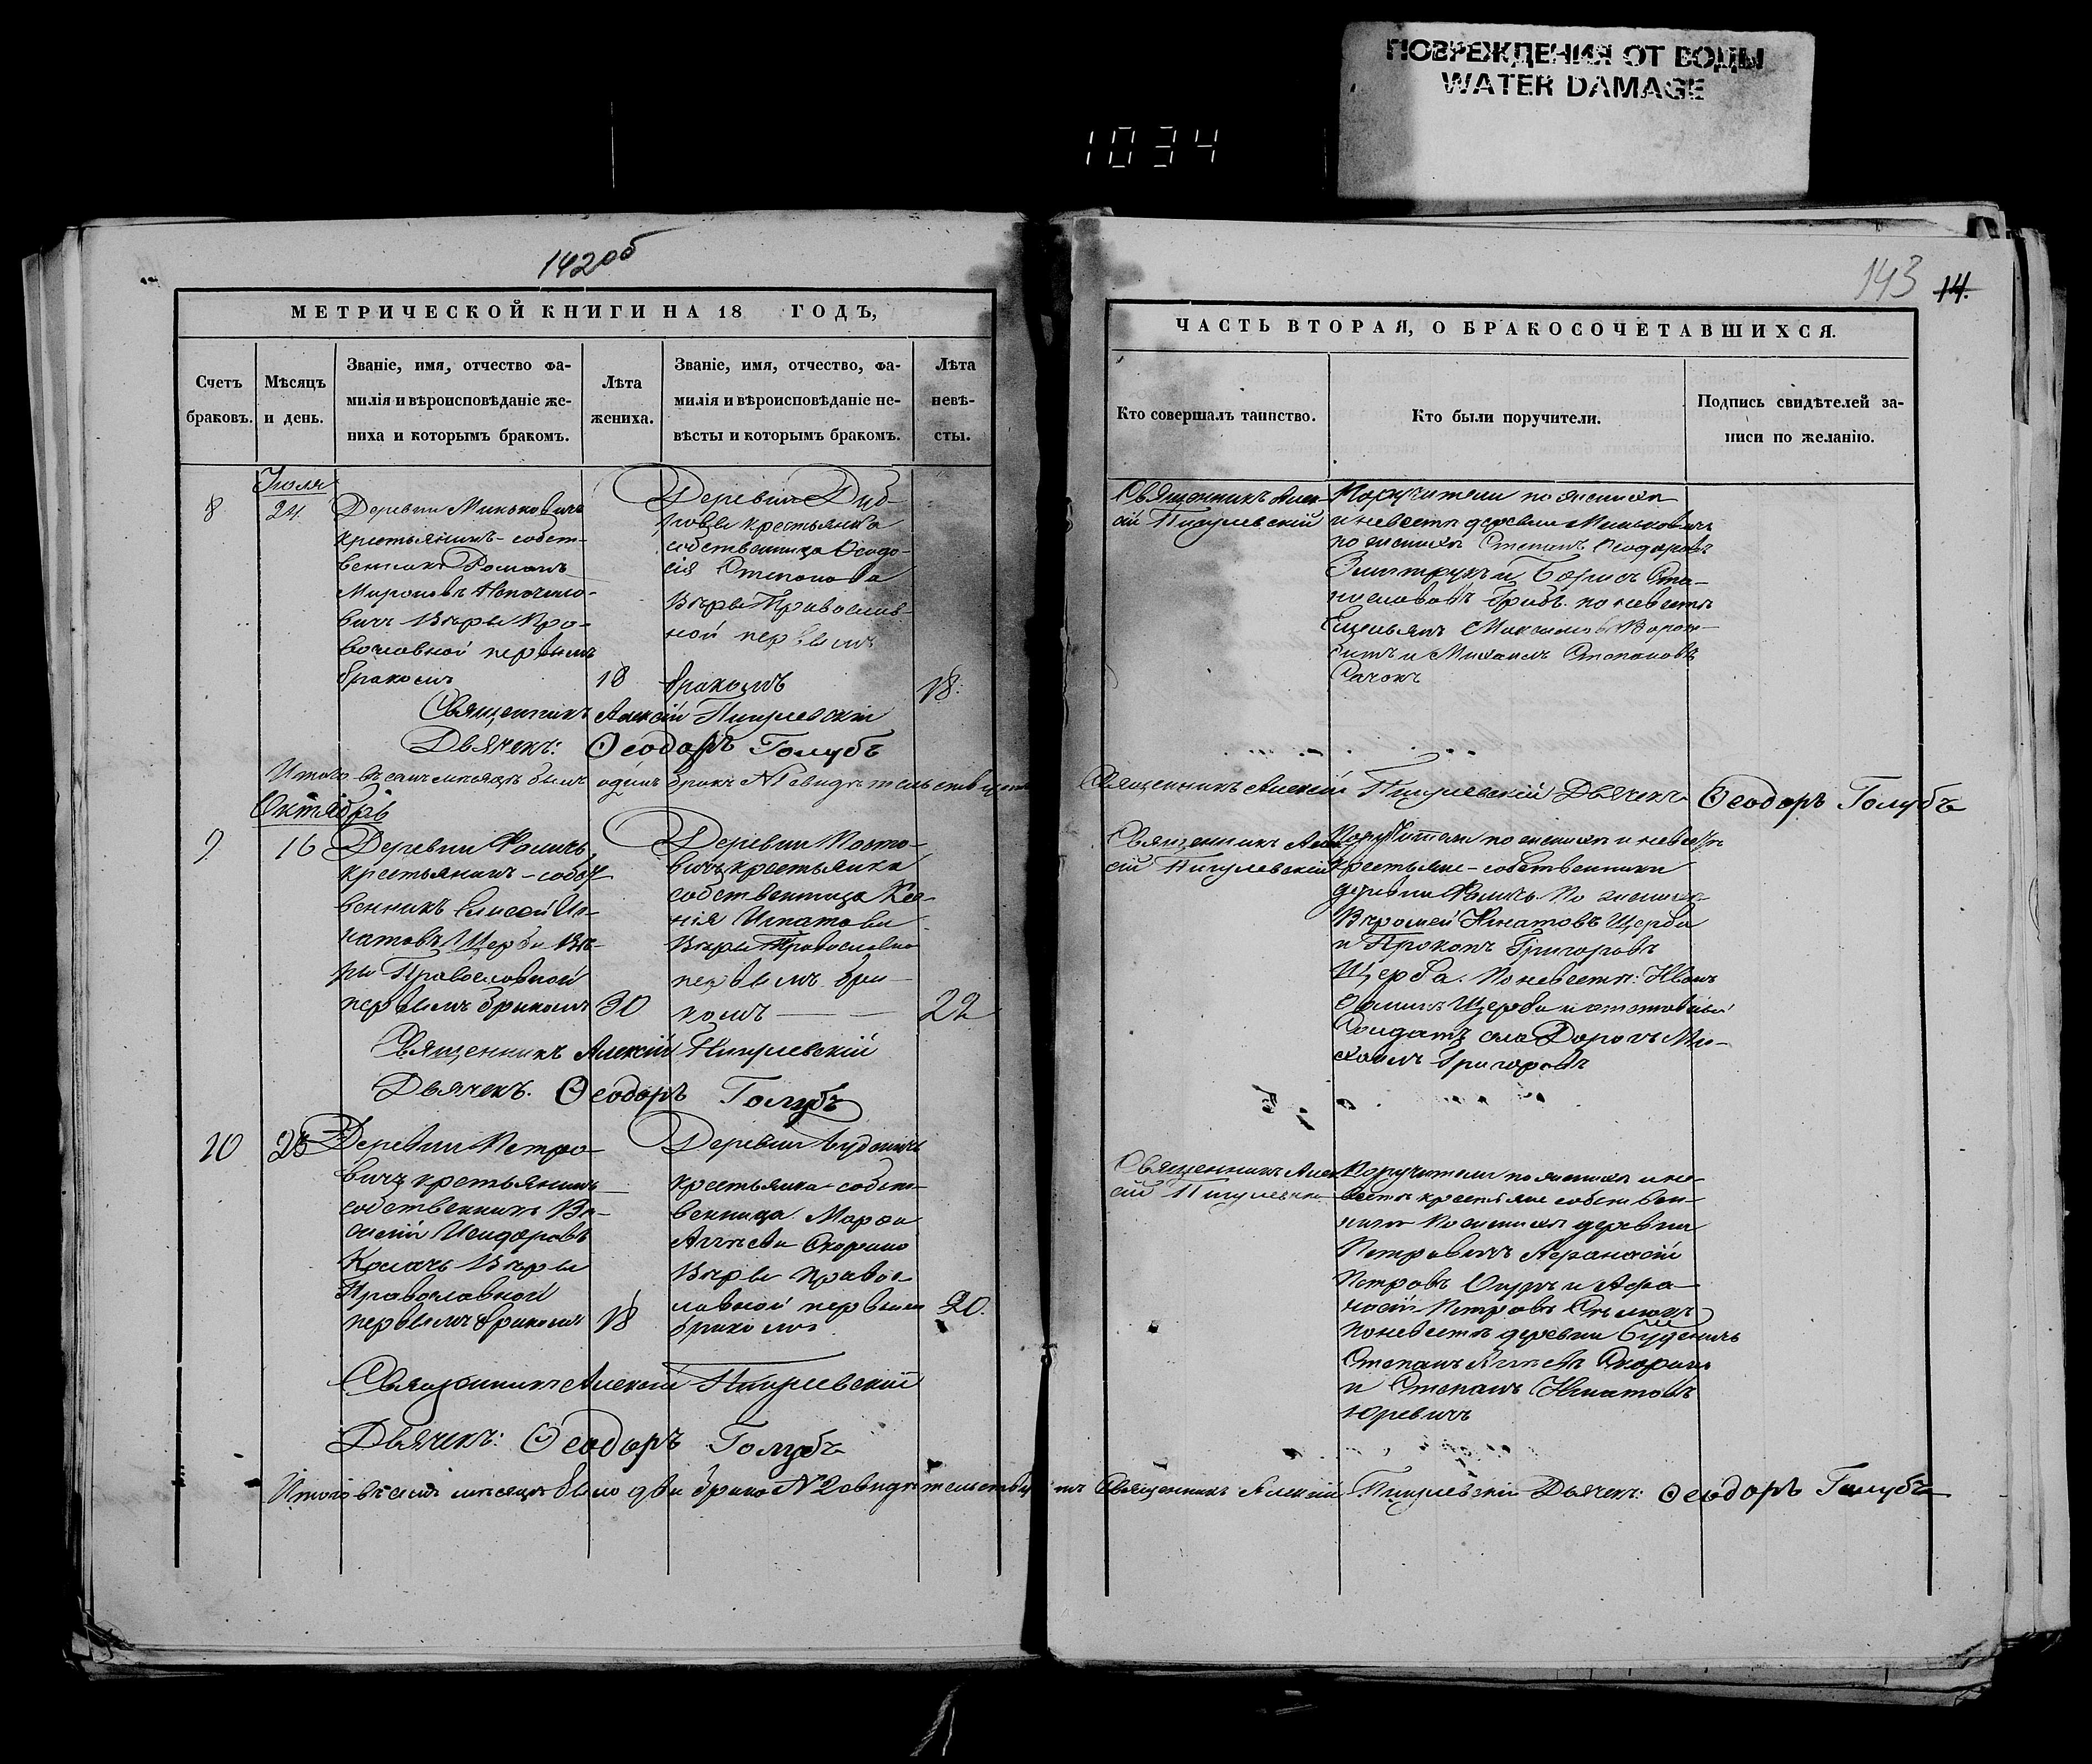 ПОВРЕЖДЕНИЯ ОТ ВОДЫ
WATER DAMAGE
1034
142об
МЕТРИЧЕСКОЙ КНИГИ НА 18 ГОДЪ,
Счетъ браковъ.
Мѣсяцъ и день.
Званіе, имя, отчество фа-
милія и вѣроисповѣданіе же-
ниха и которымъ бракомъ.
Лѣта жениха.
Званіе, имя, отчество, фа-
милія и вѣроисповѣданіе не-
вѣсты и которымъ бракомъ.
Лѣта невѣ-
сты.
Іюля
8
24
Деревни Миньковичъ
крестьянинъ-собст-
венникъ Романъ
Мироновъ
вичъ Вѣры Пра-
вославной первымъ
бракомъ
18
Деревни
крестьянка
собственница Ѳеодо-
сія Степанова
Вѣры Православ-
ной первымъ
бракомъ
18.
Священникъ Алексій Пигулевскій
Дьячекъ: Ѳеодоръ Голубъ
Итого въ семъ мѣсяцѣ былъ одинъ бракъ №1 свидѣтельствуютъ
Октябрь
9.
16
Деревни
крестьянинъ-собст
венникъ Елисей Иг-
натовъ Щерба Вѣ-
ры Православной
первымъ бракомъ
30
Деревни
вичъ крестьянка
собственница Ксе-
нія Игнатова
Вѣры Православно
первымъ бра-
комъ
22
Священникъ Алексій Пигулевскій
Дьячекъ. Ѳеодоръ Голубъ
10
23
Деревни Петро-
вичъ крестьянинъ
собственникъ Ва-
силій Исидоровъ
Козачъ Вѣры
Православной
первымъ бракомъ
18
Деревни Буденичъ
крестьянка-собст-
венница Марѳа
Скорино
Вѣры Правос-
лавной первымъ
бракомъ.
20.
Священникъ Алексій Пигулевскій
Дьячекъ: Ѳеодоръ Голубъ
Итого въ семъ мѣсяцѣ было два брака №2 свидѣтельствуютъ
143
14.
ЧАСТЬ ВТОРАЯ, О БРАКОСОЧЕТАВШИХСЯ.
Кто совершалъ таинство.
Кто были поручители.
Подпись свидѣтелей за-
писи по желанію.
Священникъ Алек-
сій Пигулевскій
Поручители по женихѣ
и невѣстѣ деревни Миньковичъ
по женихѣ Степанъ Ѳеодоровъ
и Борисъ
по невѣстѣ
Емельянъ Максимовъ
и Михаилъ Степановъ
Священникъ Алексій Пигулевскій Дьячекъ Ѳеодоръ Голубъ
Священникъ Алек
сій Пигулевскій
Поручители по женихѣ и невѣстѣ
крестьяне-собственники
деревни По женихѣ
Игнатовъ Щерба
и Прокопъ Григоровъ
Щерба. По невѣстѣ: Иванъ
Щерба и отставной
Солдатъ села Дорогъ Ми-
хаилъ Григоровъ
Священникъ Алек
сій
Поручители по женихѣ и не-
вѣстѣ крестьяне собствен-
ники По женихѣ деревни
Петровичъ Аѳанасій
Петровъ и Аѳа-
насій Петровъ
По невѣстѣ деревни Буденичъ
Степанъ
и Степанъ Игнатовъ
Юревичъ
Священникъ Алексій Пигулевскій Дьячекъ: Ѳеодоръ Голубъ